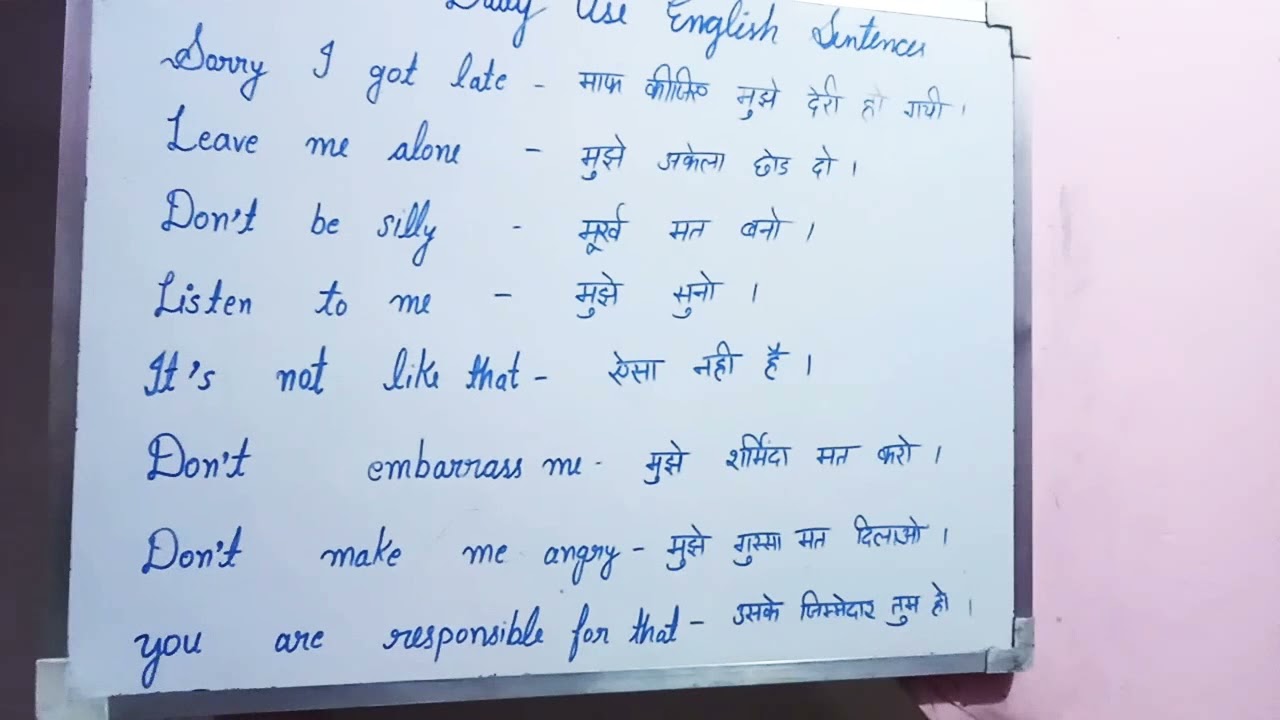 Daily Use English Sentences
Sorry I got late - माफ कीजिए मुझे देरी हो गयी ।
Leave me alone - मुझे अकेला छोड दो ।
Don't be silly - मूर्ख मत बनो ।
Listen to me - मुझे सुनो ।
It's not like that - ऐसा नही है ।
Don't embarrass me - मुझे शर्मिंदा मत करो ।
Don't make me angry - मुझे गुस्सा मत दिलाओ ।
you are responsible for that - उसके जिम्मेदार तुम हो ।